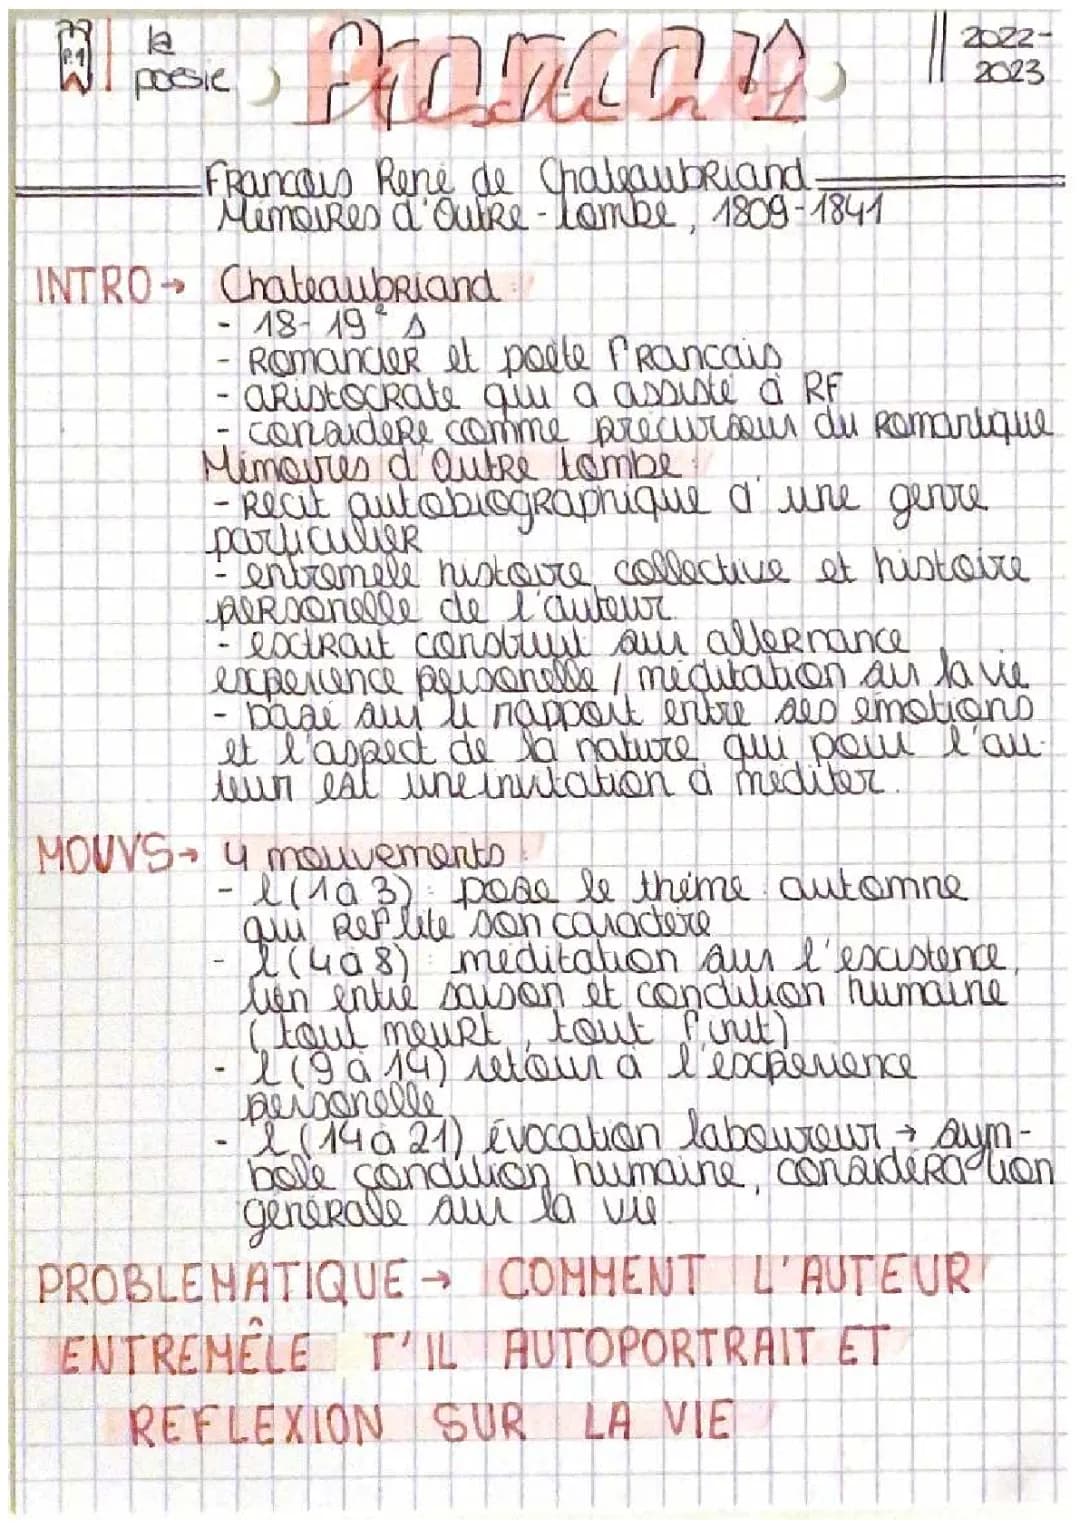 P.1
la
poésie
Français
2022-
2023
François René de Chateaubriand
Mémoires d'Outre-tombe, 1809-1841
INTRO → Chateaubriand :
- 18-19e s
- Romancier et poète francais
- aristocrate qui a assisté à RF
- considéré comme précurseur du Romantique
Mémoires d'Outre tombe :
- Récit autobiographique d'une genre
particulier
- entremele histoire collective et histoire
personelle de l'auteur
- extrait construit sur alternance
experience personelle / méditation sur la vie
- basé sur le rapport entre ses émotions
et l'aspect de la nature qui pour l'au-
teur est une invitation à méditer.
MOUVS → 4 mouvements :
- l (1 à 3) : pose le thème automne
qui reflète son caractère
- l (4 à 8) : méditation sur l'existence,
lien entre saison et condition humaine
(tout meurt, tout finit)
- l (9 à 14) retour à l'expérience
personelle
- l (14 à 21) évocation laboureur → sym-
bole condition humaine, considération
générale sur la vie
PROBLEMATIQUE → COMMENT L'AUTEUR
ENTREMÊLE T'IL AUTOPORTRAIT ET
REFLEXION SUR LA VIE